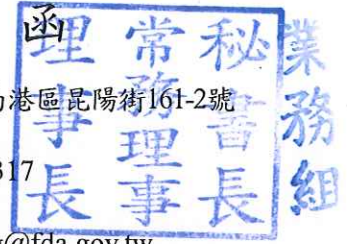 函
港區昆陽街161-2號
317
@fda.gov.tw
理事長
常務理事
秘書長
業務組